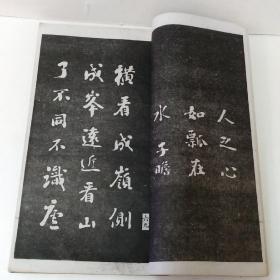 人之心
如瓢在
水 子瞻
橫看成嶺側
成峯遠近看山
了不同不識廬